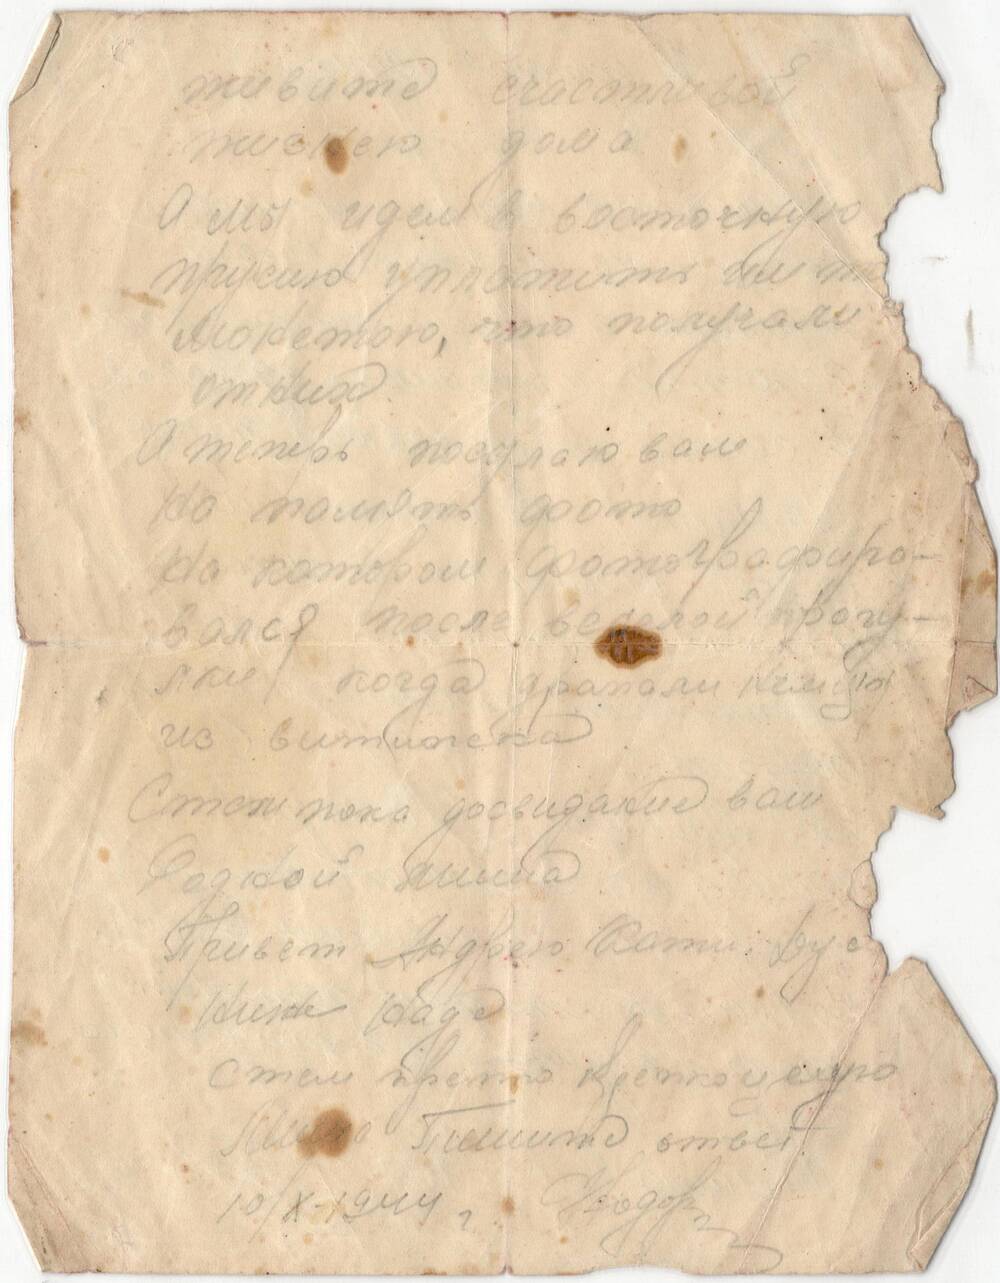 живите счастливой
жизнею дома
А мы идем в восточную
прусию уплотить им то
можетою, что получали
от них
А теперь посулаю вам
на память фото
на котором фотографиро-
вался после веселой прогу-
лки когда драпали немцы
из витипска
Стем пока досвидание ваш
Родной
Привет Андрею Кати. Дус
Нине Наде
с тем крепко целую
Пишите ответ
10/X-1944 г. Федор